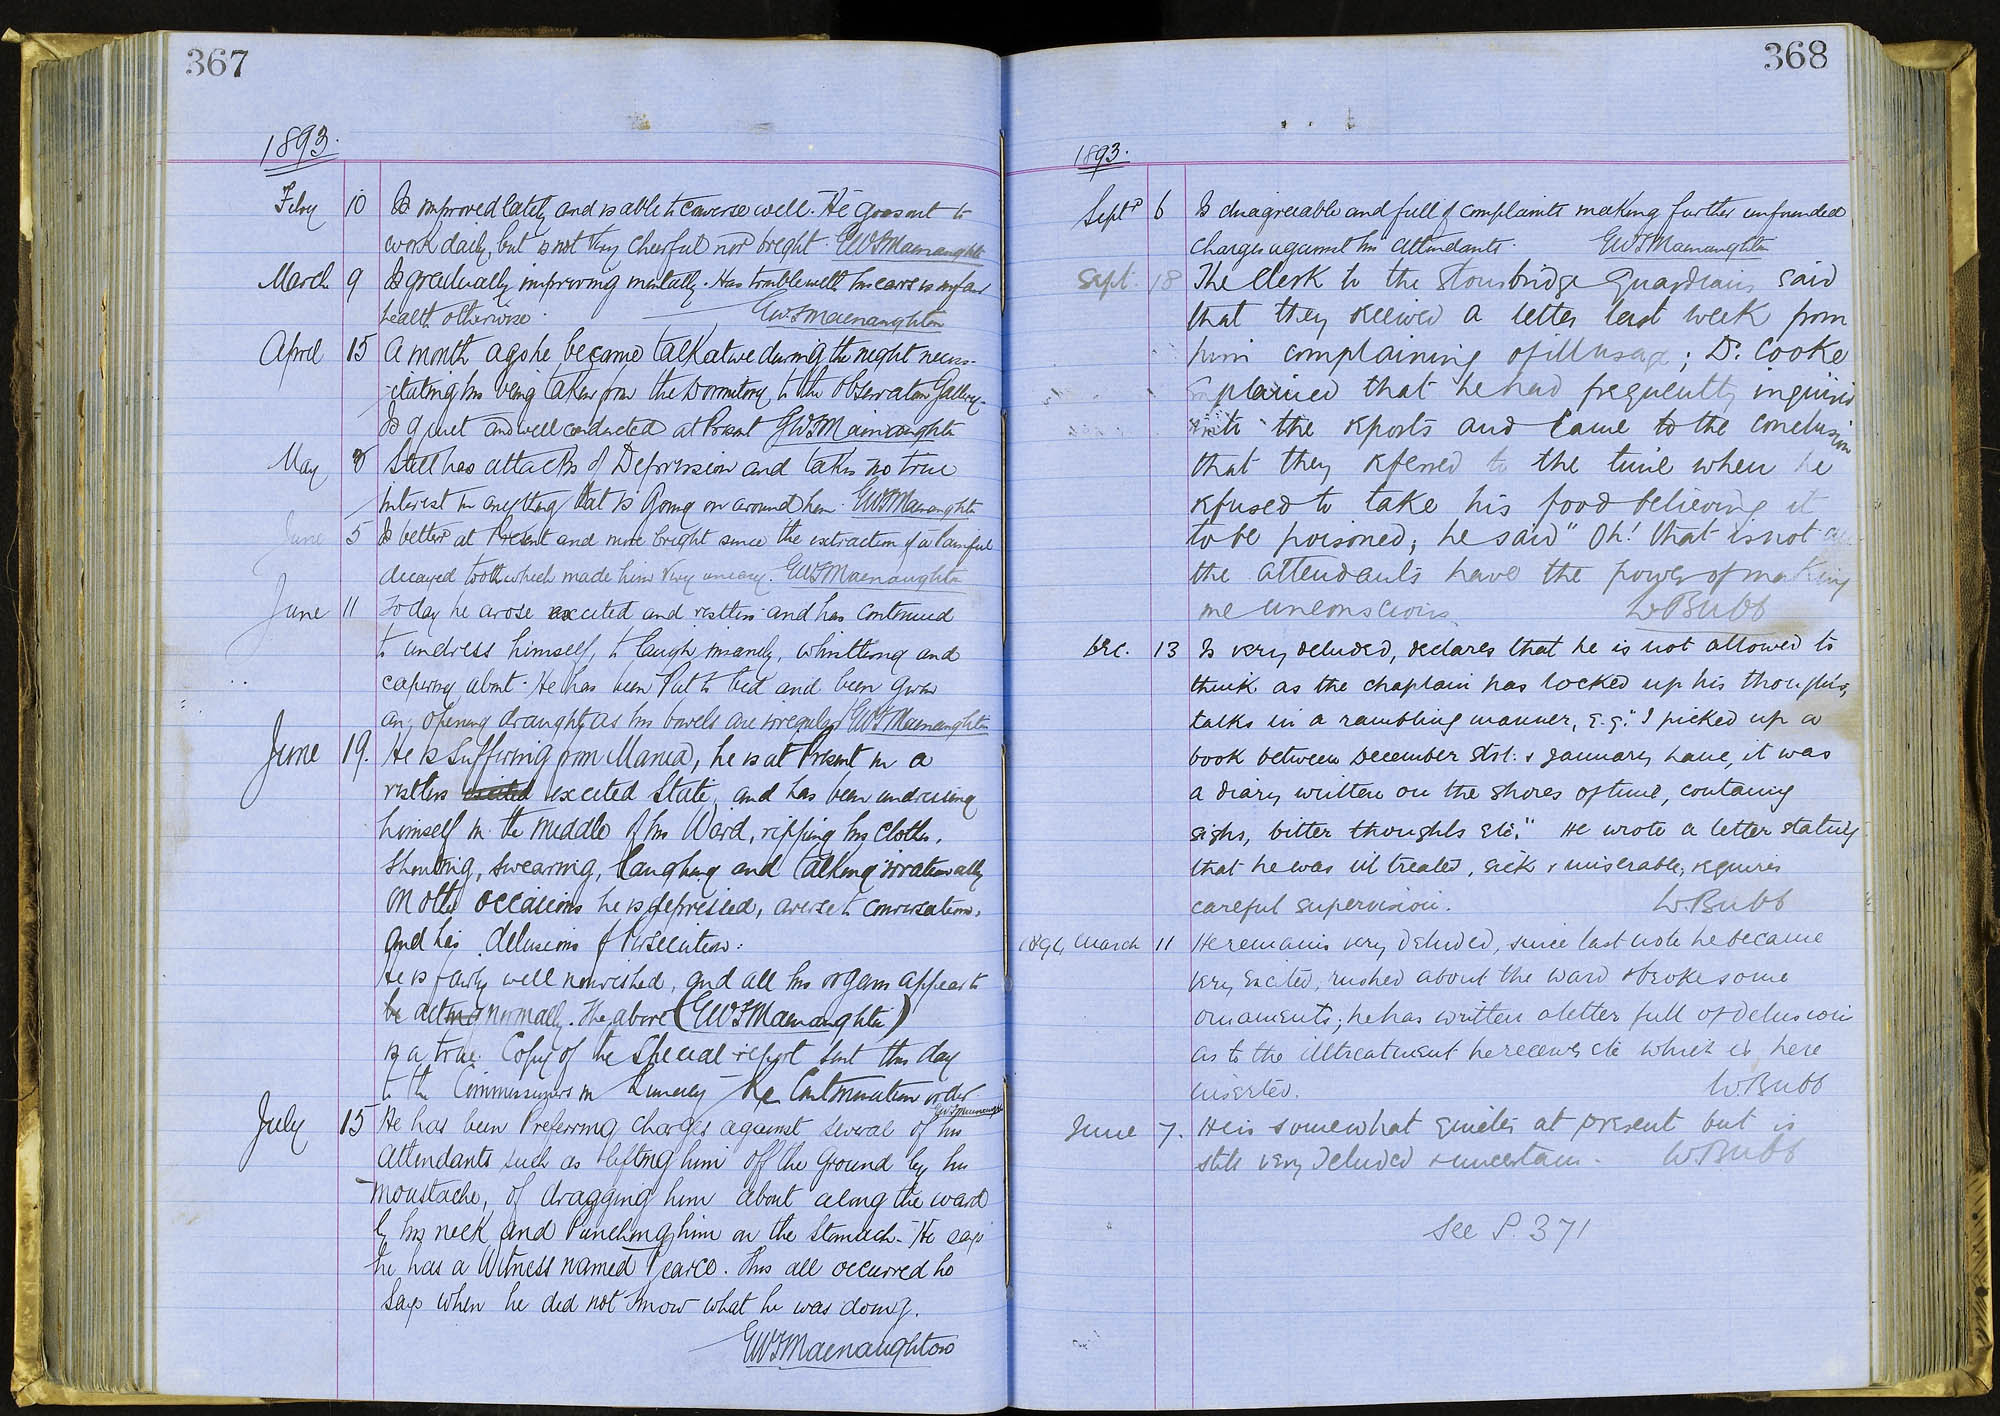 367
1893.
Feby 10 Is improved lately and is able to converse well. He goes out to
work daily, but is not very cheerful nor bright. GWFMacnaughton
March 9 Is gradually improving mentally. Has trouble with his ears is in fair
health otherwise. GWFMacnaughton
April 15 A month ago he became talkative during the night neces-
-sitating his being taken from the Dormitory to the Observation Gallery.
Is quiet and well conducted at Present GWFMacnaughton
May 8 Still has attacks of Depression and takes no true
interest in anything that is going on around him. GWFMacnaughton
June 5 Is better at Present and more bright since the extraction of a Painful
decayed tooth which made him very uneasy. GWFMacnaughton
June 11 Today he arose excited and restless and has continued
to undress himself, to laugh insanely, whistling and
capering about. He has been Put to bed and been given
an opening draught as his bowels are irregular GWFMacnaughton
June 19. He is Suffering from Mania, he is at Present in a
restless excited excited State, and has been undressing
himself in the middle of his Ward, ripping his clothes,
Shouting, swearing, laughing and talking irrationally
On other occasions he is depressed, averse to conversation,
and has delusions of Persecution:
He is fairly well nourished, and all his organs appear to
be acting normally. The above (GWFMacnaughton)
is a true Copy of the Special report sent this day
to the Commissioners in Lunacy Re Continuation order
GWFMacnaughton
July 15 He has been Preferring charges against several of his
Attendants such as lifting him off the ground by his
moustache, of dragging him about along the ward
by his neck and Punching him on the Stomach. He says
he has a Witness named Pearce. This all occurred he
Says when he did not know what he was doing.
GWFMacnaughton
368
1893.
Septr 6 Is disagreeable and full of complaints making further unfounded
charges against his attendants. GWFMacnaughton
Sept. 18 The Clerk to the Stourbridge Guardians said
that they received a letter last week from
him complaining of ill usage; Dr. Cooke
explained that he had frequently inquired
into the reports and came to the conclusion
that they referred to the time when he
refused to take his food believing it
to be poisoned; he said "Oh! that is not all
the attendants have the power of making
me unconscious. W Bubb
Dec. 13 Is very deluded, declares that he is not allowed to
think as the chaplain has locked up his thoughts,
talks in a rambling manner, e.g. "I picked up a
book between December 31st. & January, it was
a diary written on the shores of time, containg
sighs, bitter thoughts etc." He wrote a letter stating
that he was ill treated, sick & miserable, requires
careful supervision. W Bubb
1894 March 11 He remains very deluded, since last note he became
very excited, rushed about the ward & broke some
ornaments; he has written a letter full of delusion
as to the illtreatment he receives etc which is here
inserted. W. Bubb
June 7. He is somewhat quieter at present but is
still very deluded & uncertain. W. Bubb
See P. 371